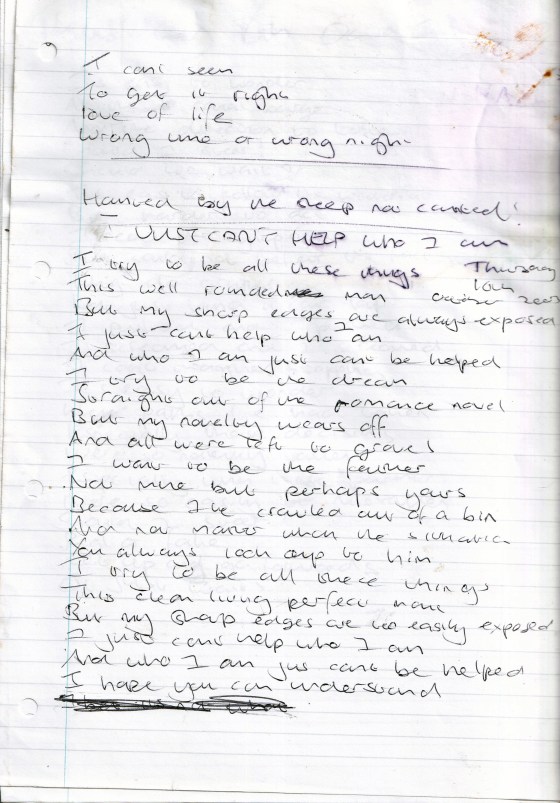 I cant seem
To get it right
love of life
Wrong time or wrong night
Haunted by the sheep not counted!
I JUST CAN'T HELP who I am
I try to be all these things Thursday
This well rounded man 10th
But my sharp edges are always exposed
I just cant help who I am
And who I am just cant be helped
I try to be the dream
Straight out of the romance novel
But my novelty wears off
And all were left to grovel
I want to be the father
Not mine but perhaps yours
Because I've crawled out of a bin
And not matter when the situation
You always look up to him
I try to be all these things
This clean living perfect man
But my sharp edges are too easily exposed
I just cant help who I am
And who I am jus cant be helped
I hope you can understand